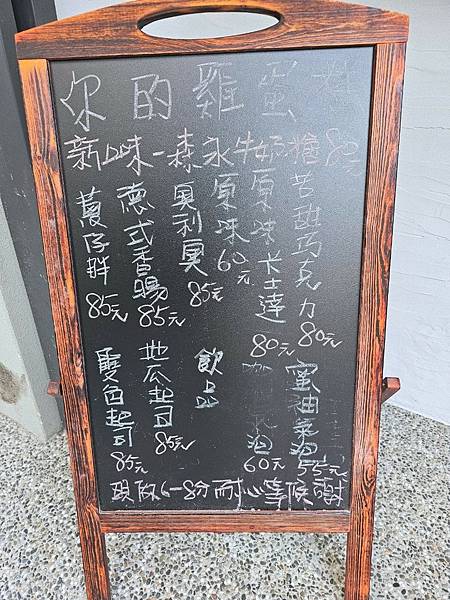 你的雞蛋
新口味-森永牛奶糖80元
苦甜巧克力
80元
原味卡士達
80元
原味
60元
奧利奧
85元
德式香腸
85元
蔓仔群
85元
蜜柚氣泡
55元
氣泡
60元
飲品
地瓜起司
85元
雙色起司
85元
現做6-8分耐心等候謝